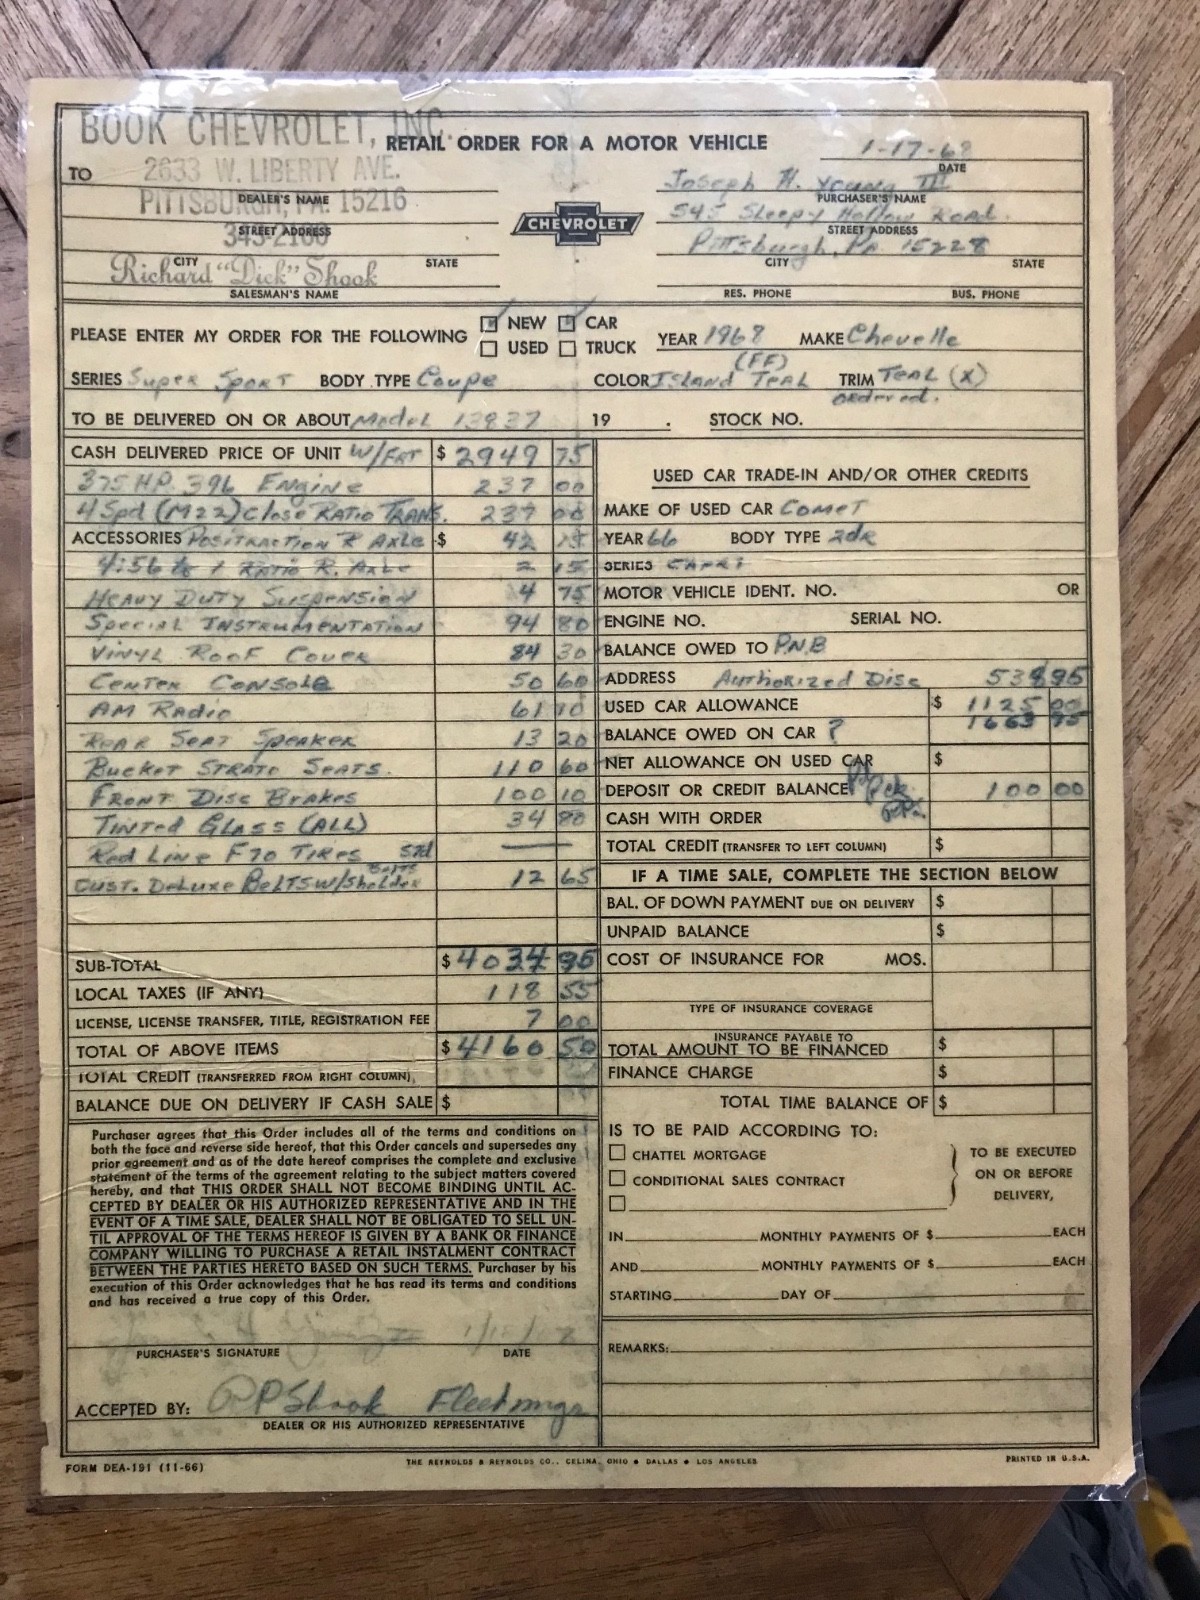 BOOK CHEVROLET, INC.
RETAIL ORDER FOR A MOTOR VEHICLE
1-17-68
DATE
TO
2633 W. LIBERTY AVE.
Joseph H. Young III
DEALER'S NAME
PURCHASER'S NAME
PITTSBURGH, PA. 15216
545 Sleepy Hollow Road.
STREET ADDRESS
STREET ADDRESS
343-2100
CHEVROLET
Pittsburgh, Pa 15228
CITY STATE
CITY STATE
Richard "Dick" Shook
SALESMAN'S NAME
RES. PHONE BUS. PHONE
PLEASE ENTER MY ORDER FOR THE FOLLOWING NEW CAR YEAR 1968 MAKE Chevelle
USED TRUCK
(FF)
SERIES Super Sport BODY TYPE Coupe COLOR Island Teal TRIM Teal (X)
ordered.
TO BE DELIVERED ON OR ABOUT Model 13837 19 . STOCK NO.
CASH DELIVERED PRICE OF UNIT W/FRT $ 2949 75
375 HP. 396 Engine 237 00
4 Spd (M22) Close RATIO TRANS. 237 00
ACCESSORIES POSITRACTION R AXLE $ 42 15
4:56 to 1 RATIO R. Axle 2 15
HEAVY DUTY SUSPENSION 4 75
Special INSTRUMENTATION 94 80
VINYL ROOF COVER 84 30
CENTER CONSOLE 50 60
AM RADIO 61 10
REAR SEAT SPEAKER 13 20
BUCKET STRATO SEATS. 110 60
FRONT DISC BRAKES 100 10
TINTED GLASS (ALL) 34 80
Red Line F70 TIRES std —
CUST. DeLuxe BELTS w/Sholder Belts 12 65
SUB-TOTAL $ 4034 95
LOCAL TAXES (IF ANY) 118 55
LICENSE, LICENSE TRANSFER, TITLE, REGISTRATION FEE 7 00
TOTAL OF ABOVE ITEMS $ 4160 50
TOTAL CREDIT (TRANSFERRED FROM RIGHT COLUMN)
BALANCE DUE ON DELIVERY IF CASH SALE $
Purchaser agrees that this Order includes all of the terms and conditions on
both the face and reverse side hereof, that this Order cancels and supersedes any
prior agreement and as of the date hereof comprises the complete and exclusive
statement of the terms of the agreement relating to the subject matters covered
hereby, and that THIS ORDER SHALL NOT BECOME BINDING UNTIL AC-
CEPTED BY DEALER OR HIS AUTHORIZED REPRESENTATIVE AND IN THE
EVENT OF A TIME SALE, DEALER SHALL NOT BE OBLIGATED TO SELL UN-
TIL APPROVAL OF THE TERMS HEREOF IS GIVEN BY A BANK OR FINANCE
COMPANY WILLING TO PURCHASE A RETAIL INSTALMENT CONTRACT
BETWEEN THE PARTIES HERETO BASED ON SUCH TERMS. Purchaser by his
execution of this Order acknowledges that he has read its terms and conditions
and has received a true copy of this Order.
PURCHASER'S SIGNATURE DATE
ACCEPTED BY: RP Shook Fleet mngr
DEALER OR HIS AUTHORIZED REPRESENTATIVE
USED CAR TRADE-IN AND/OR OTHER CREDITS
MAKE OF USED CAR Comet
YEAR 66 BODY TYPE 2dr
SERIES CAPRI
MOTOR VEHICLE IDENT. NO. OR
ENGINE NO. SERIAL NO.
BALANCE OWED TO P.N.B
ADDRESS Authorized Disc 538 95
USED CAR ALLOWANCE $ 1125 00
BALANCE OWED ON CAR ? 1663 95
NET ALLOWANCE ON USED CAR $
DEPOSIT OR CREDIT BALANCE 100 00
CASH WITH ORDER
TOTAL CREDIT (TRANSFER TO LEFT COLUMN) $
IF A TIME SALE, COMPLETE THE SECTION BELOW
BAL. OF DOWN PAYMENT DUE ON DELIVERY $
UNPAID BALANCE $
COST OF INSURANCE FOR MOS.
TYPE OF INSURANCE COVERAGE
INSURANCE PAYABLE TO
TOTAL AMOUNT TO BE FINANCED $
FINANCE CHARGE $
TOTAL TIME BALANCE OF $
IS TO BE PAID ACCORDING TO:
CHATTEL MORTGAGE
CONDITIONAL SALES CONTRACT
TO BE EXECUTED
ON OR BEFORE
DELIVERY,
IN MONTHLY PAYMENTS OF $ EACH
AND MONTHLY PAYMENTS OF $ EACH
STARTING DAY OF
REMARKS:
FORM DEA-191 (11-66)
THE REYNOLDS & REYNOLDS CO., CELINA, OHIO • DALLAS • LOS ANGELES
PRINTED IN U.S.A.